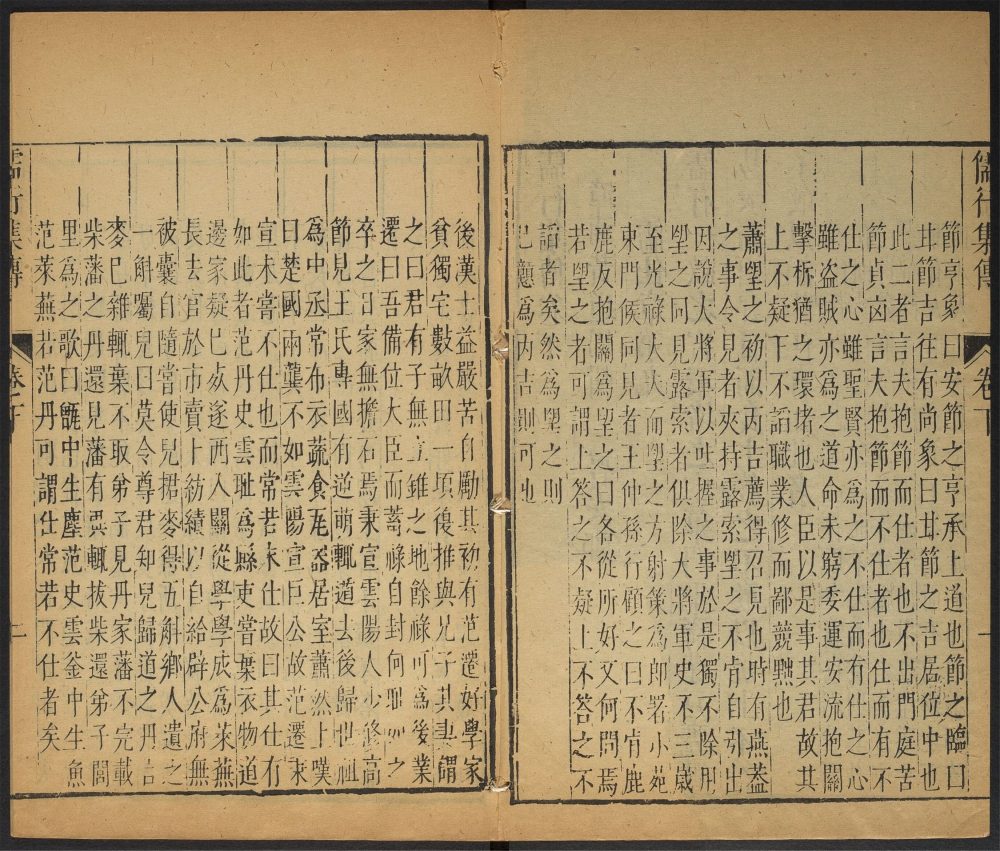 儒行集傳
卷下
一
節亨象曰安節之亨承上道也節之臨曰
甘節吉往有尚象曰甘節之吉居位中也
此二者言夫抱節而仕者也不出門庭苦
節貞凶言夫抱節而不仕者也仕而有不
仕之心雖聖賢亦為之不仕而有仕之心
雖盜賊亦為之道命未窮委運安流抱關
擊柝猶之環者也人臣以是事其君故其
上不疑下不謟者職業修而鄙競黜也
蕭朢之初以丙吉薦得召見也時有燕葢
之事令見者夾持露索朢之不肯自引出
因說大將軍以吐握之事於是獨不除用
朢之同見露索者俱除大將軍史不三歲
至光祿大夫而朢之方射策為郎署小苑
東門候同見者王仲孫行顧之曰不肯鹿
鹿反抱關為朢之曰各從所好又何問焉
若朢之者可謂上答之不疑上不答之不
謟者矣然為朢之則
已應為丙吉則可也
後漢士益嚴苦自勵其初有范遷好學家
貧獨宅數畝田一頃復推與兄子其妻謂
之曰君有子無立錐之地餘祿可為後業
遷曰吾備位大臣而蓄祿自封何
卒之日家無擔石焉秉宣雲陽人少修高
節見王氏專國有道萌輒道去後歸世祖
為中丞常布衣蔬食瓦器居室蕭然上嘆
曰楚國兩龔不如雲陽宣巨公故范遷
宣未嘗不仕也而常若未仕故曰其仕有
如此者范丹史雲恥為縣吏嘗棄衣物道
邊家疑已死遂西入關從學學成為萊蕪
長去官於市賣卜紡績以自給辟公府無
被囊自隨嘗使兒捃麥得五斛鄉人遺之
一斛囑兒曰莫令尊君知兒歸道之丹言
麥已雜輒棄不取弟子見丹家藩不完載
柴藩之丹還見藩有異輒拔柴還弟子閭
里為之歌曰甑中生塵范史雲釜中生魚
范萊蕪若范丹可謂仕常若不仕者矣
儒行集傳
卷下
二